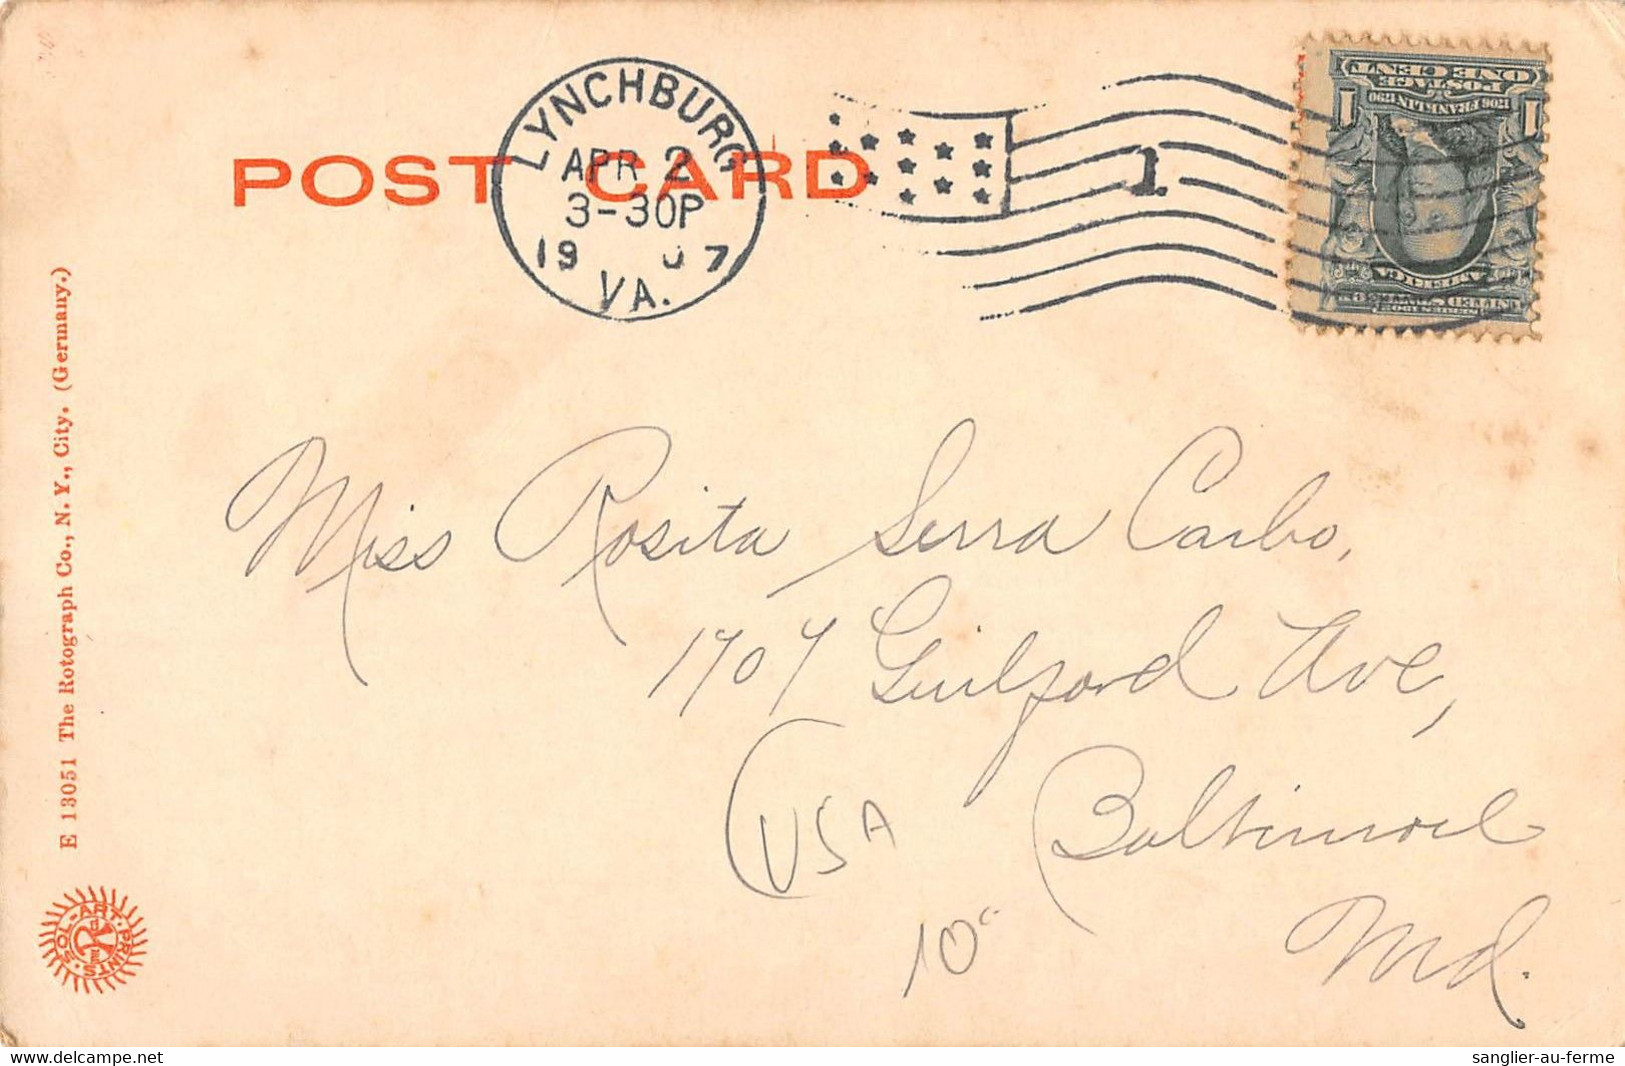 POST CARD
LYNCHBURG
APR 2
3-30P
1907
VA.
1
ONE CENT
POSTAGE
1706 FRANKLIN 1790
1 1
UNITED STATES OF AMERICA
SERIES 1902
Miss Rosita Serra Carbo,
1707 Guilford Ave,
Baltimore
Md.
(USA
10c
E 13051 The Rotograph Co., N. Y., City. (Germany.)
SOL-ART PRINTS
delcampe.net
sanglier-au-ferme